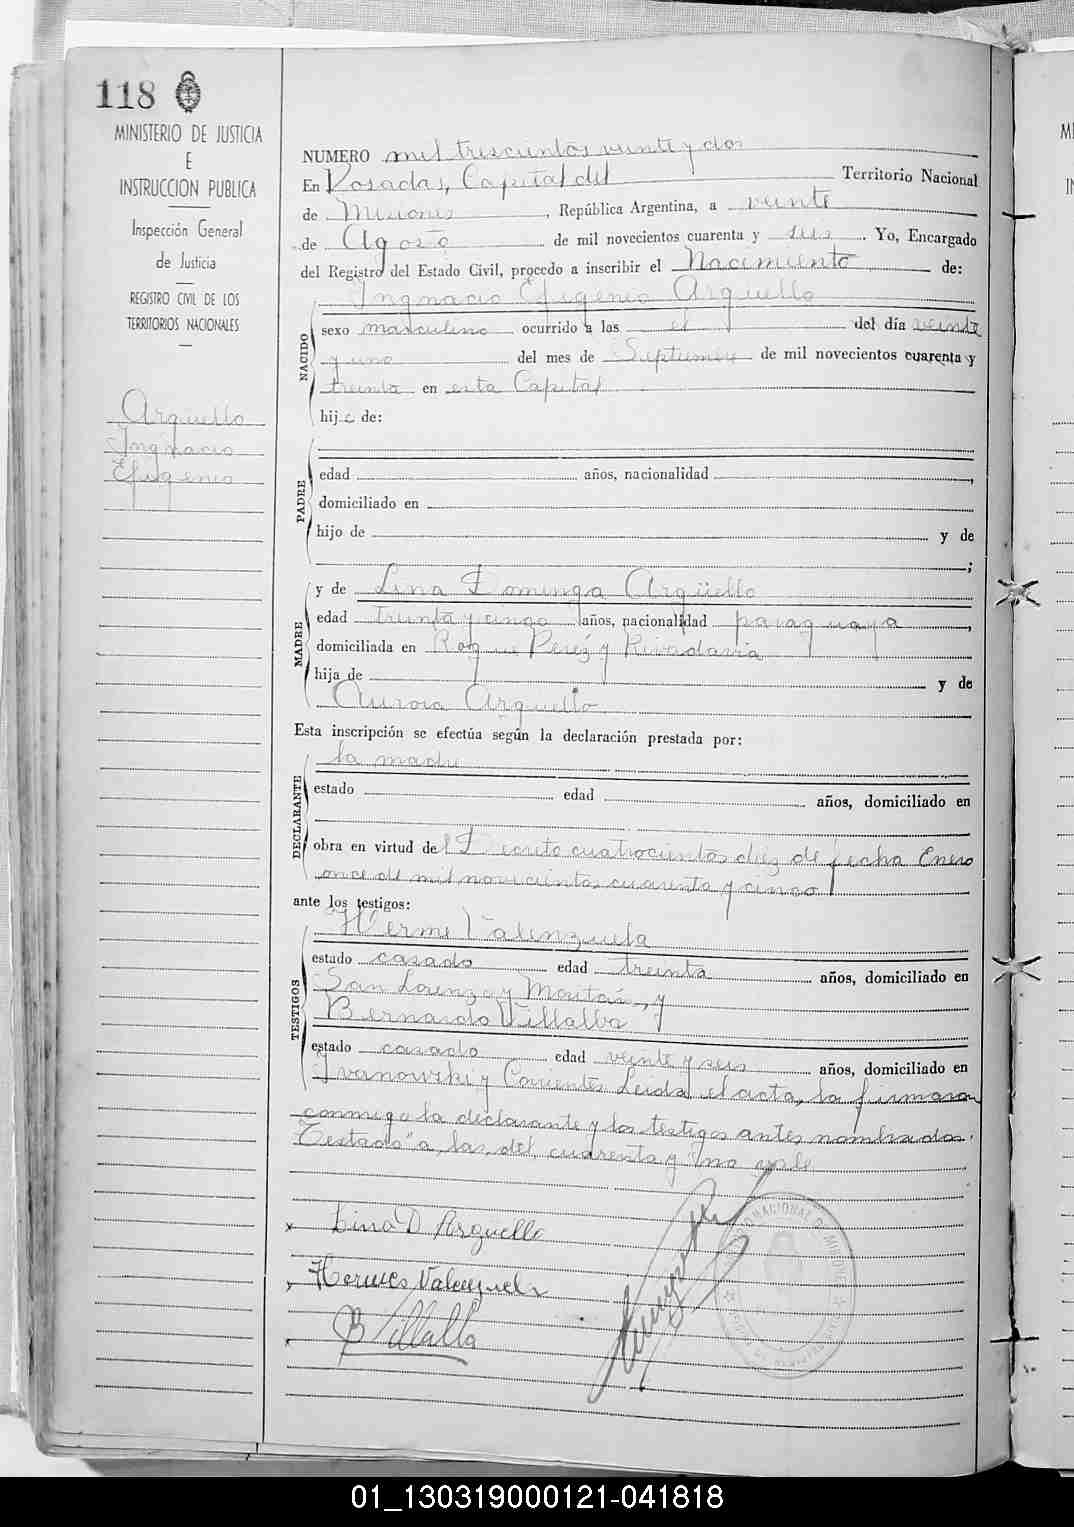 118
MINISTERIO DE JUSTICIA
E
INSTRUCCION PUBLICA
Inspección General
de Justicia
REGISTRO CIVIL DE LOS
TERRITORIOS NACIONALES
Argüello
Ingnacio
Efigenio
NUMERO mil trescientos veinte y dos
En Posadas, Capital del Territorio Nacional
de Misiones, República Argentina, a veinte
de Agosto de mil novecientos cuarenta y seis. Yo, Encargado
del Registro del Estado Civil, procedo a inscribir el Nacimiento de:
Ingnacio Efigenio Argüello
NACIDO
sexo masculino ocurrido a las el del día veinte
y uno del mes de Septiembre de mil novecientos cuarenta y
treinta en esta Capital
hijo de:
PADRE
edad años, nacionalidad ,
domiciliado en
hijo de y de
;
MADRE
y de Lina Dominga Argüello
edad treinta y cinco años, nacionalidad paraguaya,
domiciliada en Roque Peréz y Rivadavia
hija de y de
Aurora Argüello
Esta inscripción se efectúa según la declaración prestada por:
DECLARANTE
la madre
estado edad años, domiciliado en
obra en virtud del Decreto cuatrocientos diez de fecha Enero
once de mil novecientos cuarenta y cinco
ante los testigos:
TESTIGOS
Hermes Valenzuela
estado casado edad treinta años, domiciliado en
San Lorenzo y , y
Bernardo Villalba
estado casado edad veinte y seis años, domiciliado en
Ivanowski y Corrientes Leida el acta, la firmaron
conmigo la declarante y los testigos antes nombrados.
Testado "a, las, del, cuarenta y" no vale
x Lina D. Argüello
Hermes Valenzuela
B Villalba
01_130319000121-041818